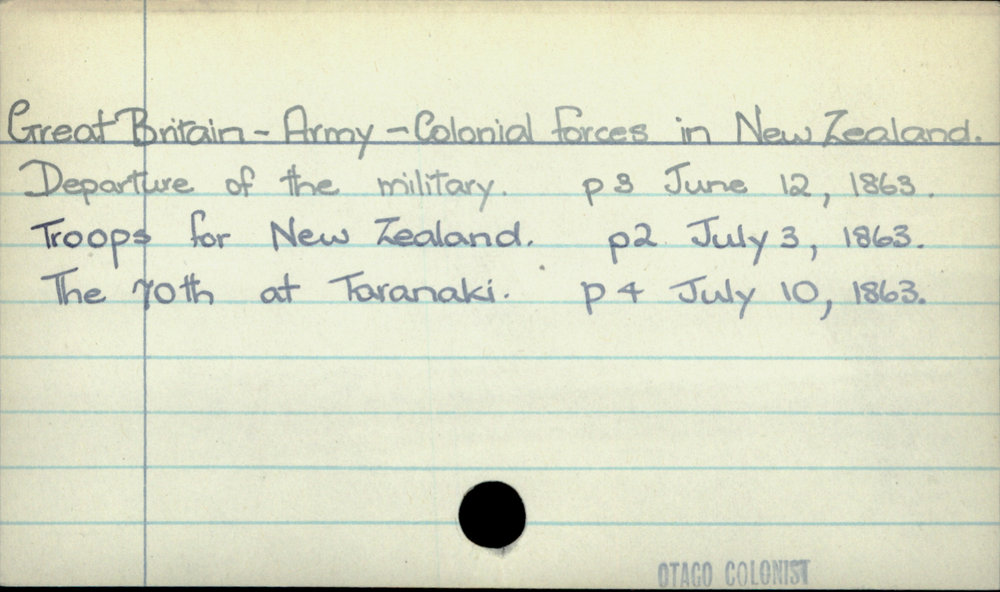 Great Britain - Army - Colonial forces in New Zealand.
Departure of the military. p 3 June 12, 1863.
Troops for New Zealand. p2 July 3, 1863.
The 70th at Taranaki. p 4 July 10, 1863.
OTAGO COLONIST